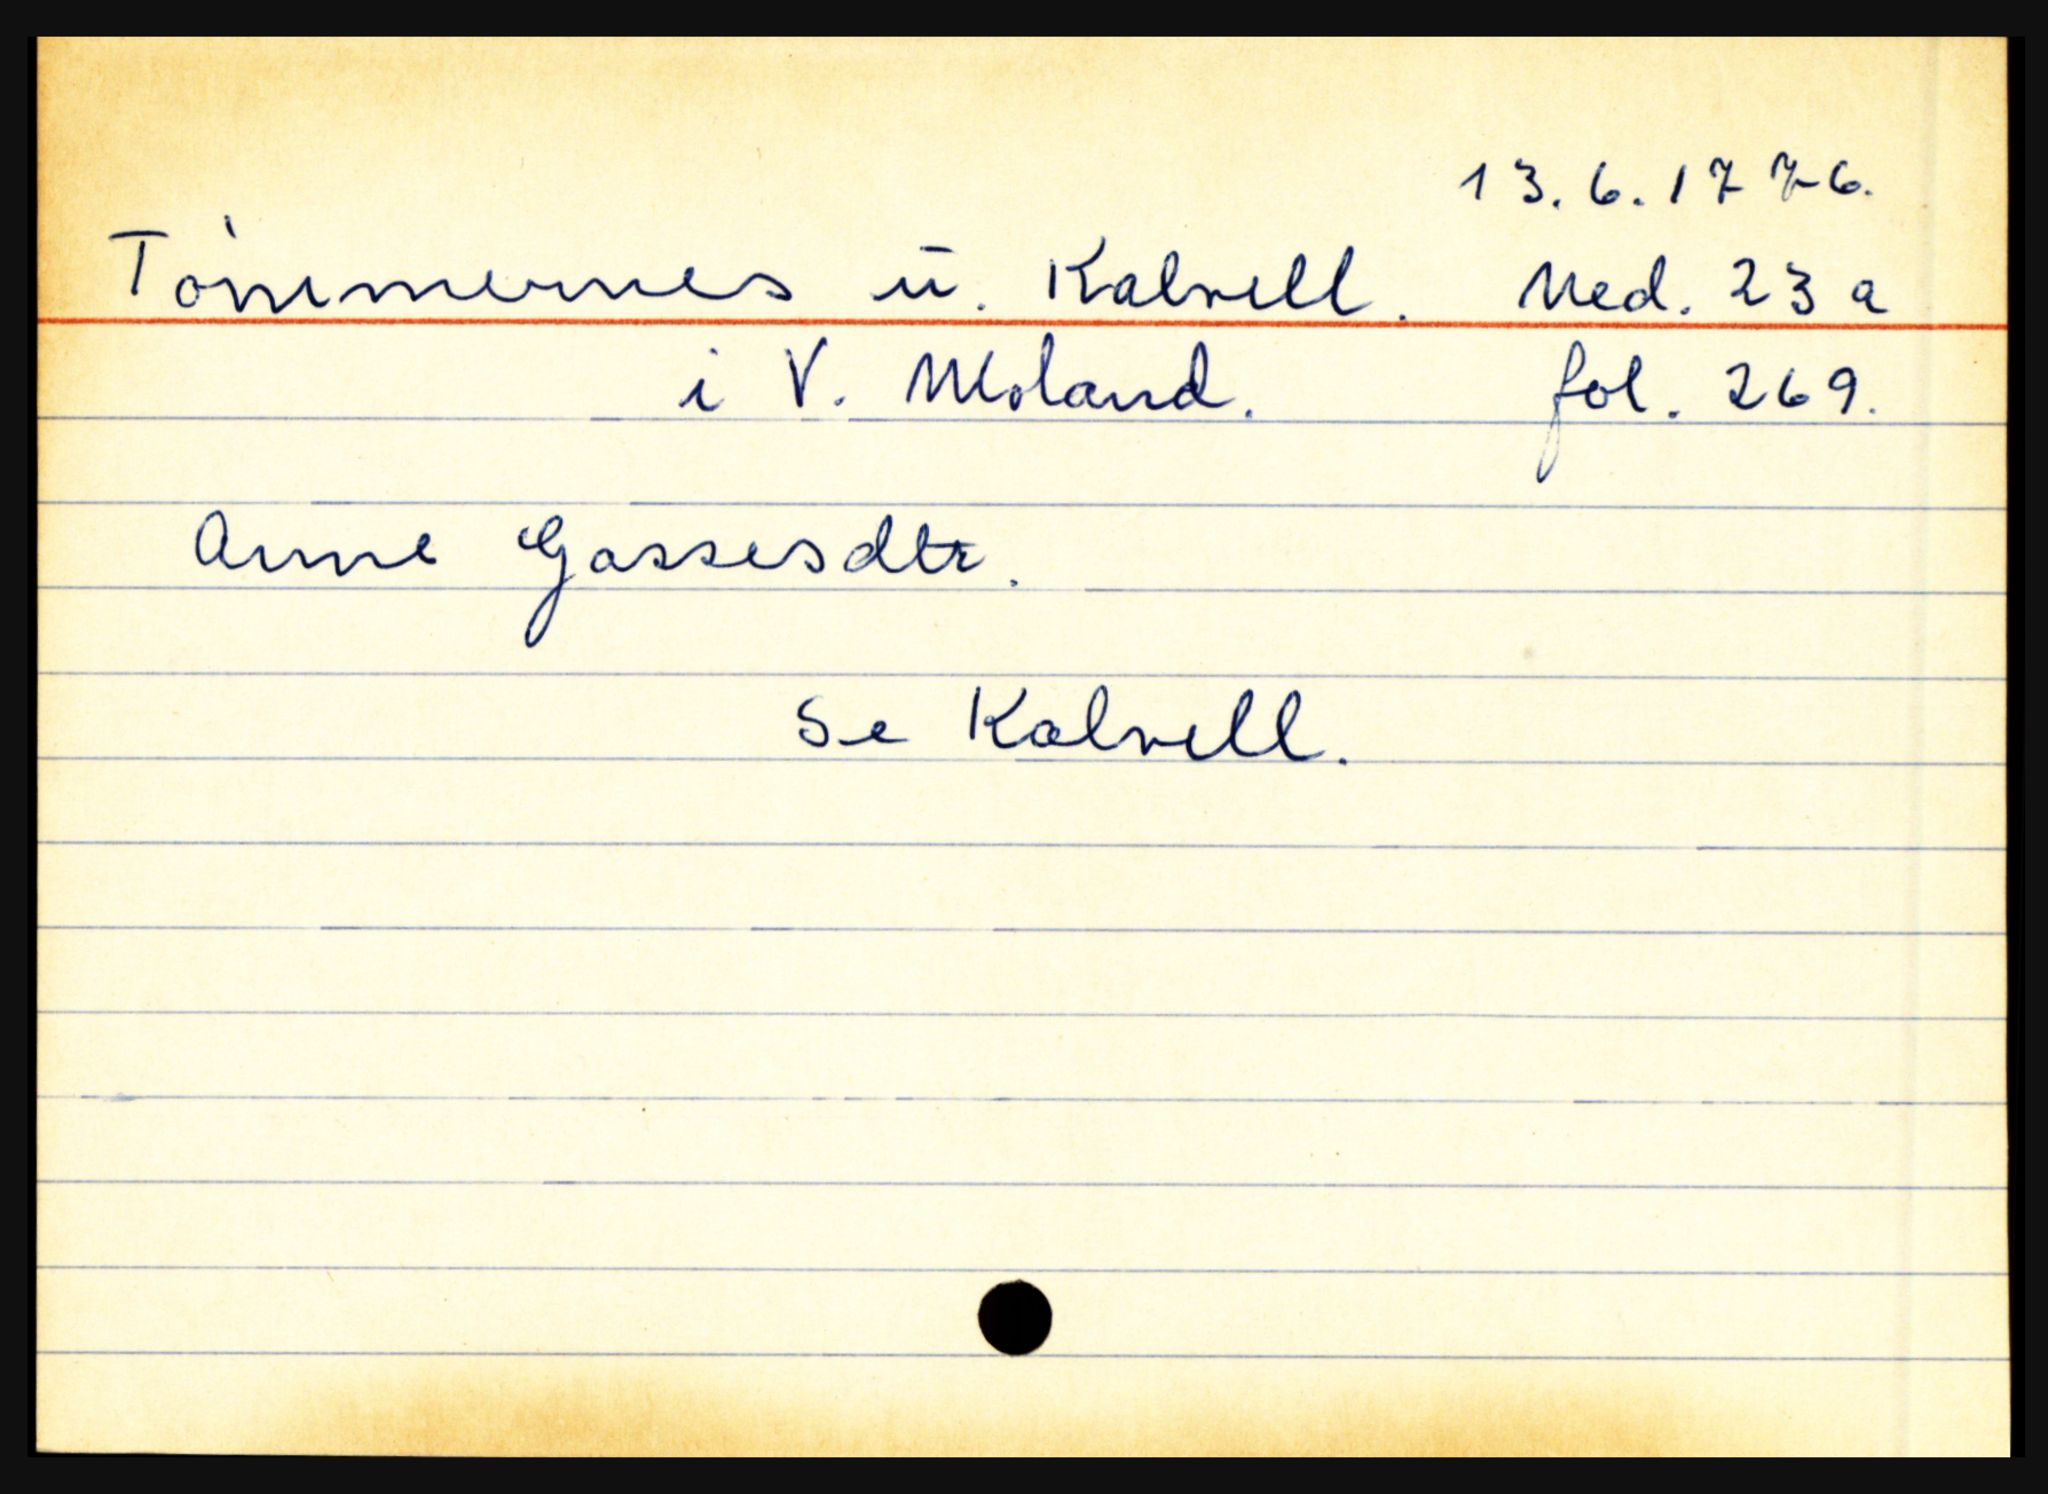 13.6.1776.
Tömmernes u. Kalvell. Ned. 23 a
i V. Moland. fol. 269.
Anne Gassesdtr.
Se Kalvell.